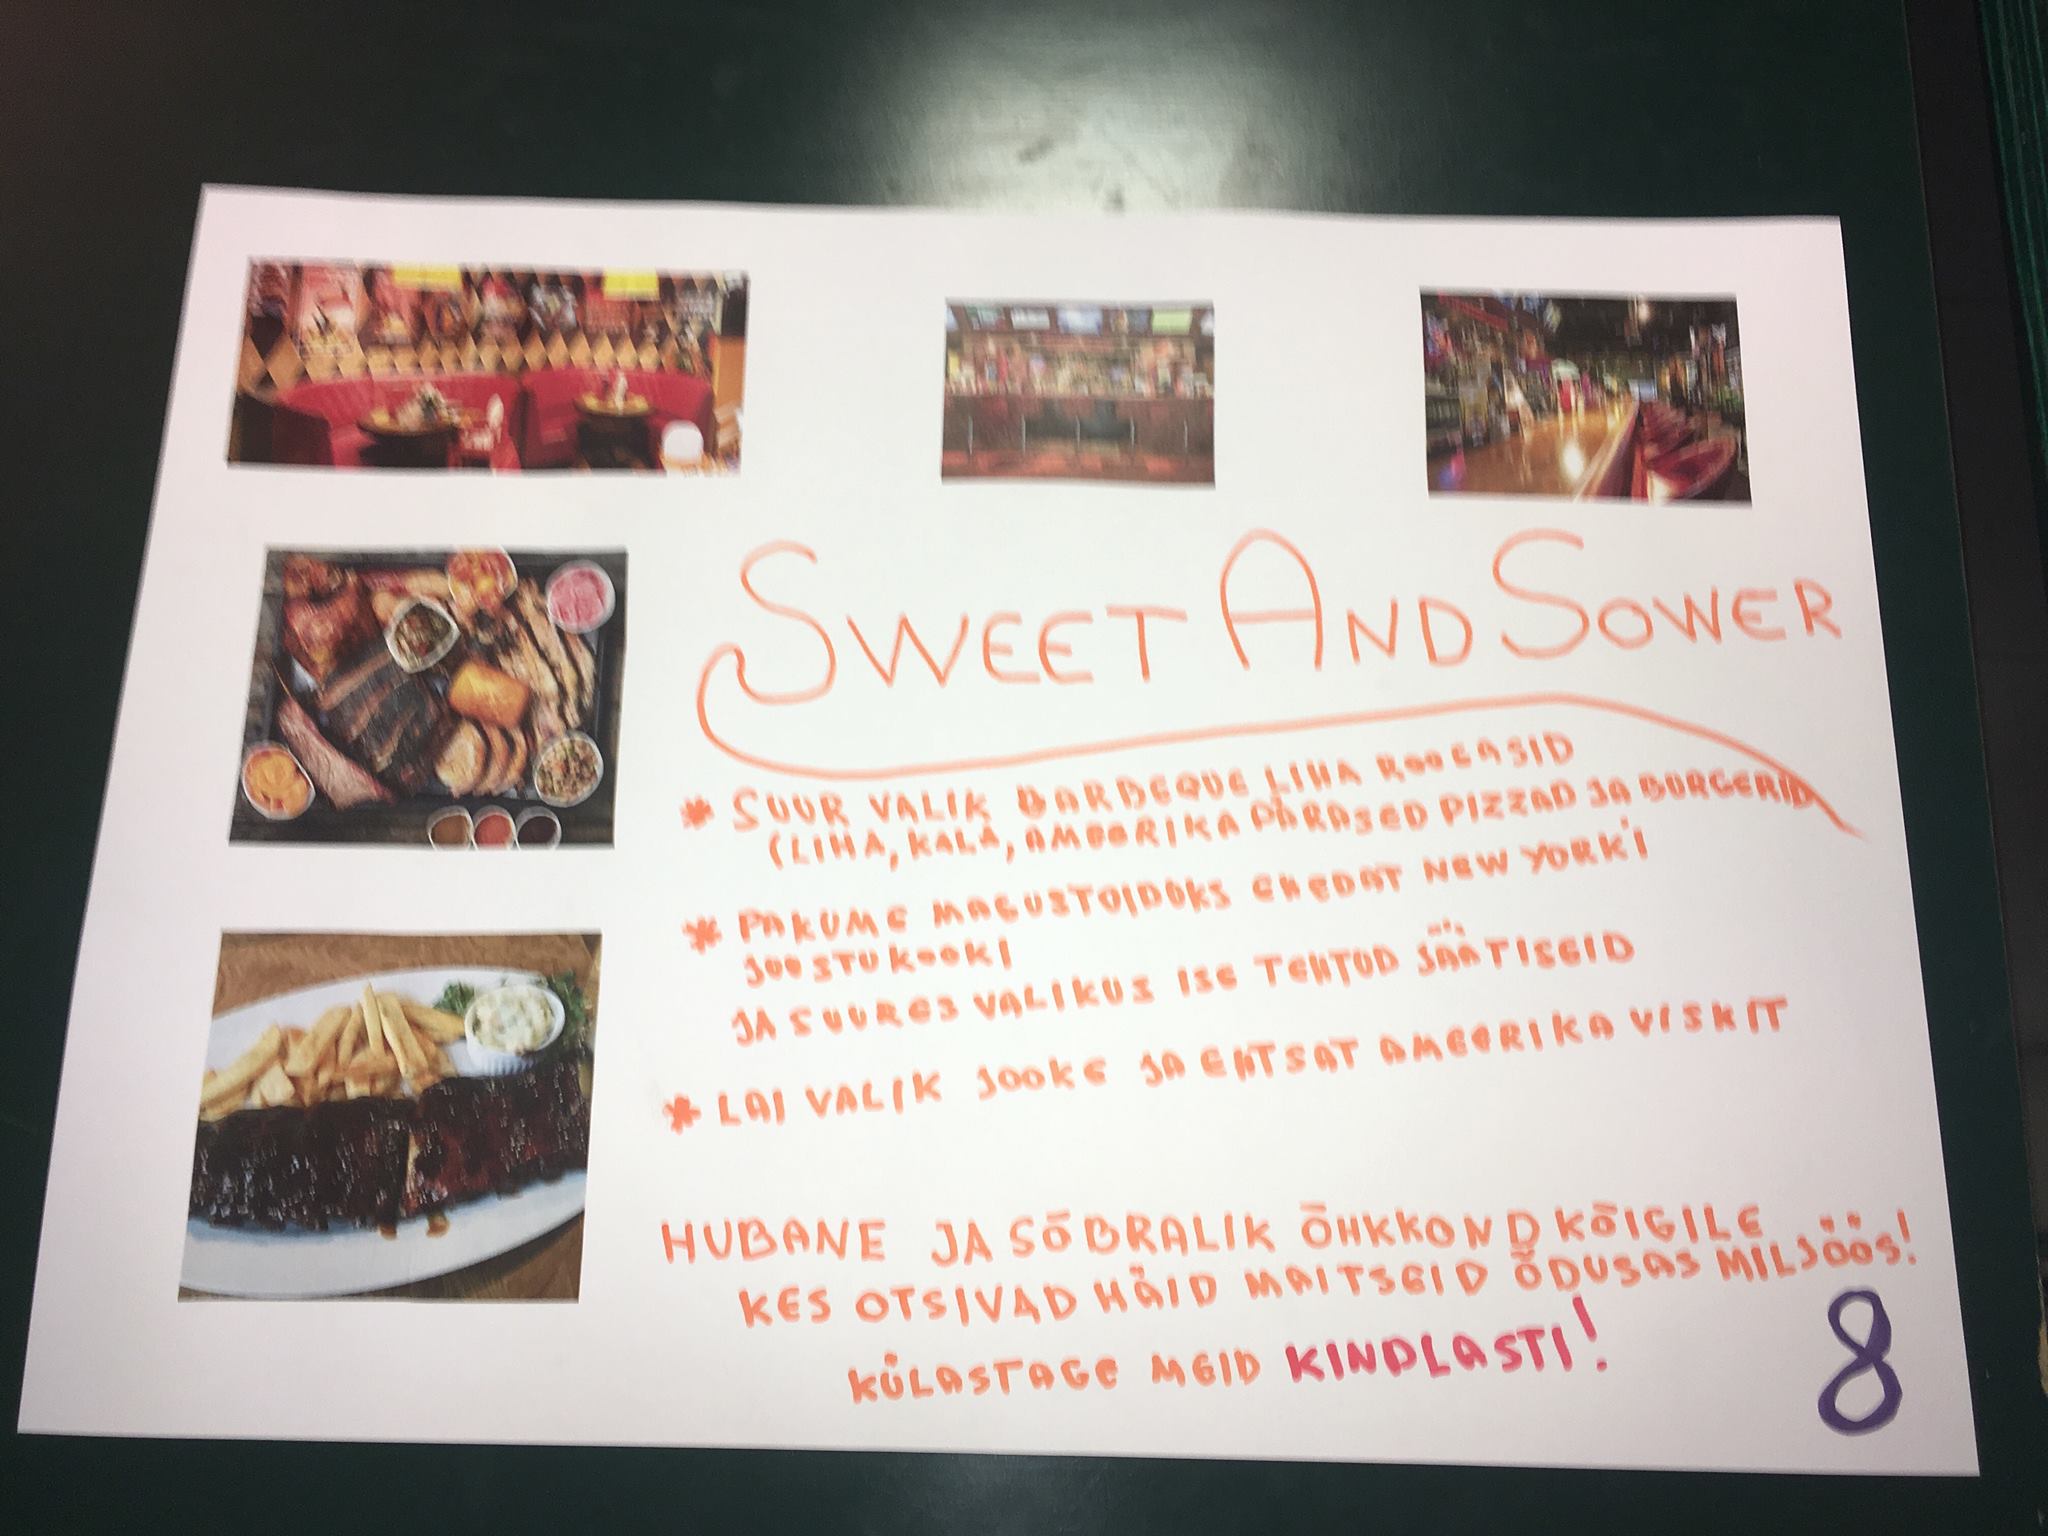 SWEET AND SOWER
* SUUR VALIK BARBEQUE LIHA ROOGASID
(LIHA, KALA, AMEERIKA PÄRASED PIZZAD JA BURGERID
* PAKUME MAGUSTOIDUKS EHEDAT NEW YORK'I
JOOSTUKOOKI
JA SUURES VALIKUS ISE TEHTUD JÄÄTISEID
* LAI VALIK JOOKE JA EHTSAT AMEERIKA VISKIT
HUBANE JA SÕBRALIK ÕHKKOND KÕIGILE
KES OTSIVAD HÄID MAITSEID ÕDUSAS MILJÖÖS!
KÜLASTAGE MEID KINDLASTI!
8